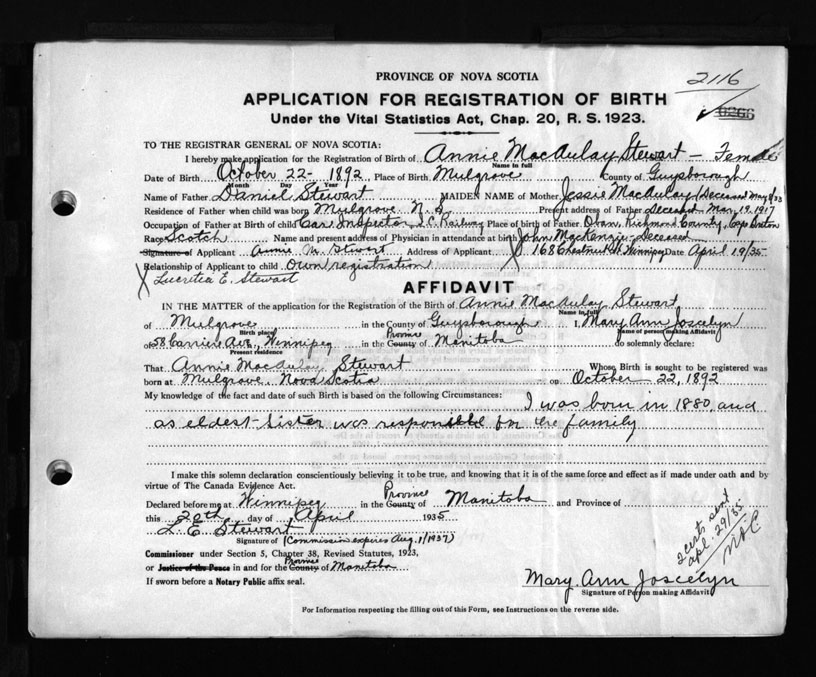 PROVINCE OF NOVA SCOTIA
2116
APPLICATION FOR REGISTRATION OF BIRTH
Under the Vital Statistics Act, Chap. 20, R. S. 1923.
TO THE REGISTRAR GENERAL OF NOVA SCOTIA:
I hereby make application for the Registration of Birth of Annie MacAulay Stewart - Female
Name in full
Date of Birth October 22 - 1892 Place of Birth Mulgrove County of Guysborough
Month Day Year
Name of Father Daniel Stewart MAIDEN NAME of Mother Jessie MacAulay (Deceased May 1/33
Residence of Father when child was born Mulgrove N. S. Present address of Father Deceased Mar. 19. 1917
Occupation of Father at Birth of child Car Inspector I. C. Railway Place of Birth of Father Richmond County, Cape Breton
Race Scotch Name and present address of Physician in attendance at birth John MacKenzie Deceased
Signature of Applicant Annie M. Stewart Address of Applicant 168 Chestnut St. Winnipeg Date April 19/35
Relationship of Applicant to child Own registration
X Lucretia E. Stewart
AFFIDAVIT
IN THE MATTER of the application for the Registration of the Birth of Annie MacAulay Stewart
Name in full
of Mulgrove in the County of Guysborough I, Mary Ann Joscelyn
Birth place Name of person making Affidavit
of 58 Carriere Ave., Winnipeg in the County Province of Manitoba do solemnly declare:
Present residence
That Annie MacAulay Stewart Whose Birth is sought to be registered was
born at Mulgrove Nova Scotia on October 22, 1892
My knowledge of the fact and date of such Birth is based on the following Circumstances: I was born in 1880, and
as eldest sister was responsible for the family
I make this solemn declaration conscientiously believing it to be true, and knowing that it is of the same force and effect as if made under oath and by
virtue of The Canada Evidence Act.
Declared before me at Winnipeg in the County Province of Manitoba and Province of
this 20th day of April 1935
L. E. Stewart
Signature of (Commission expires Aug. 1/1937)
Commissioner under Section 5, Chapter 38, Revised Statutes, 1923,
or Justice of the Peace in and for the County Province of Manitoba
If sworn before a Notary Public affix seal.
2 cert sent
apl. 29/35
Mary Ann Joscelyn
Signature of Person making Affidavit
For Information respecting the filling out of this Form, see Instructions on the reverse side.